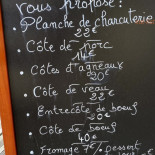 vous propose :
• Planche de charcuterie
22€
• Côte de porc
14€
• Côtes d'agneaux
20€
• Côte de veau
22€
• Entrecôte de boeuf
• Côte de boeuf
40€
• Fromage 7€ Dessert